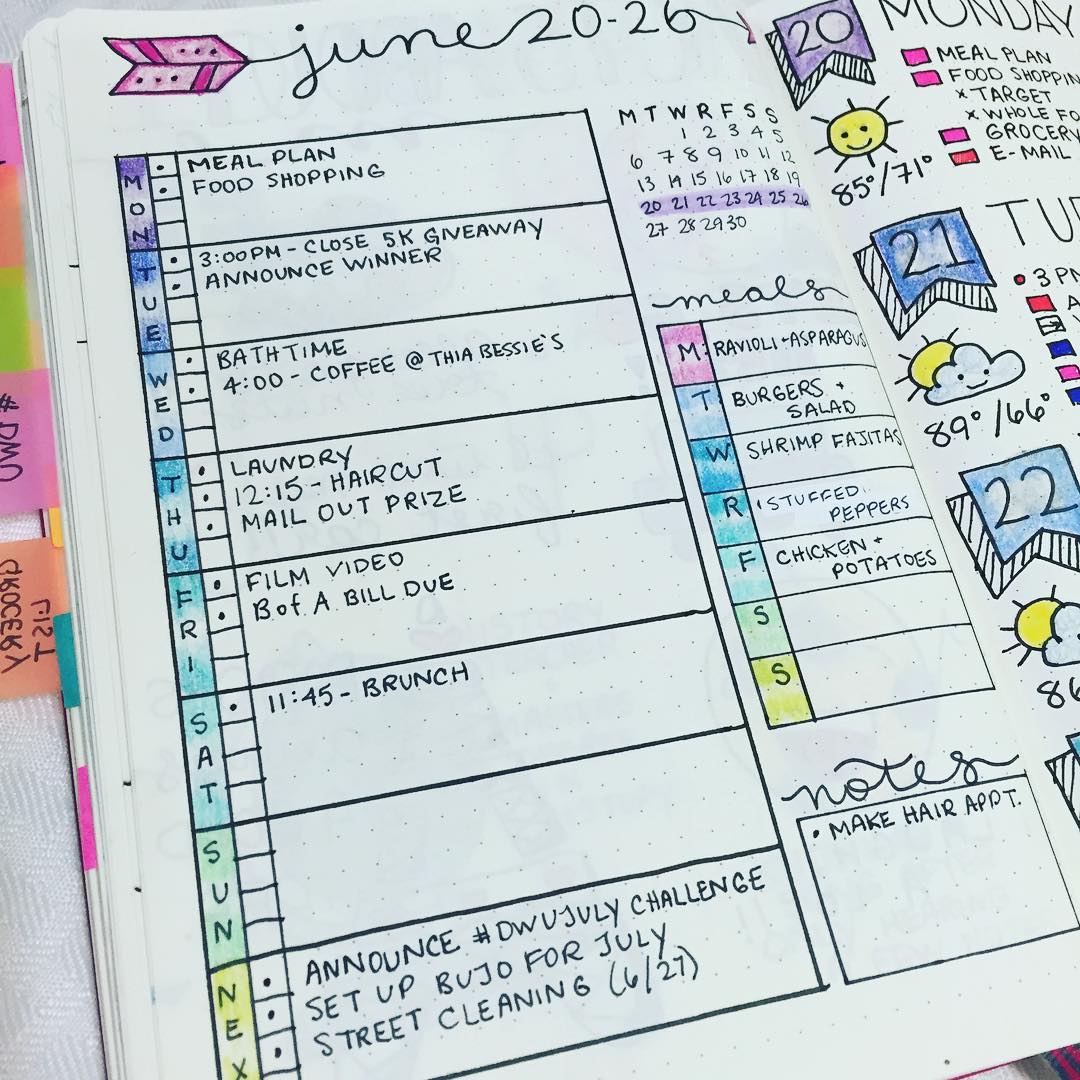 june 20-26
MON
MEAL PLAN
FOOD SHOPPING
TUE
3:00PM - CLOSE 5K GIVEAWAY
ANNOUNCE WINNER
WED
BATHTIME
4:00 - COFFEE @ THIA BESSIE'S
THU
LAUNDRY
12:15 - HAIRCUT
MAIL OUT PRIZE
FRI
FILM VIDEO
B of A BILL DUE
SAT
11:45 - BRUNCH
SUN
NEX
ANNOUNCE #DWUJULY CHALLENGE
SET UP BUJO FOR JULY
STREET CLEANING (6/27)
M T W R F S S
1 2 3 4 5
6 7 8 9 10 11 12
13 14 15 16 17 18 19
20 21 22 23 24 25 26
27 28 29 30
meals
M RAVIOLI + ASPARAGUS
T BURGERS +
SALAD
W SHRIMP FAJITAS
R STUFFED
PEPPERS
F CHICKEN +
POTATOES
S
S
notes
• MAKE HAIR APPT.
20 MONDAY
MEAL PLAN
FOOD SHOPPIN
x TARGET
x WHOLE FO
GROCERY
E-MAIL
85°/71°
21 TU
3 PM
A
89°/66°
22
86
#DWU
GROCERY
LIST